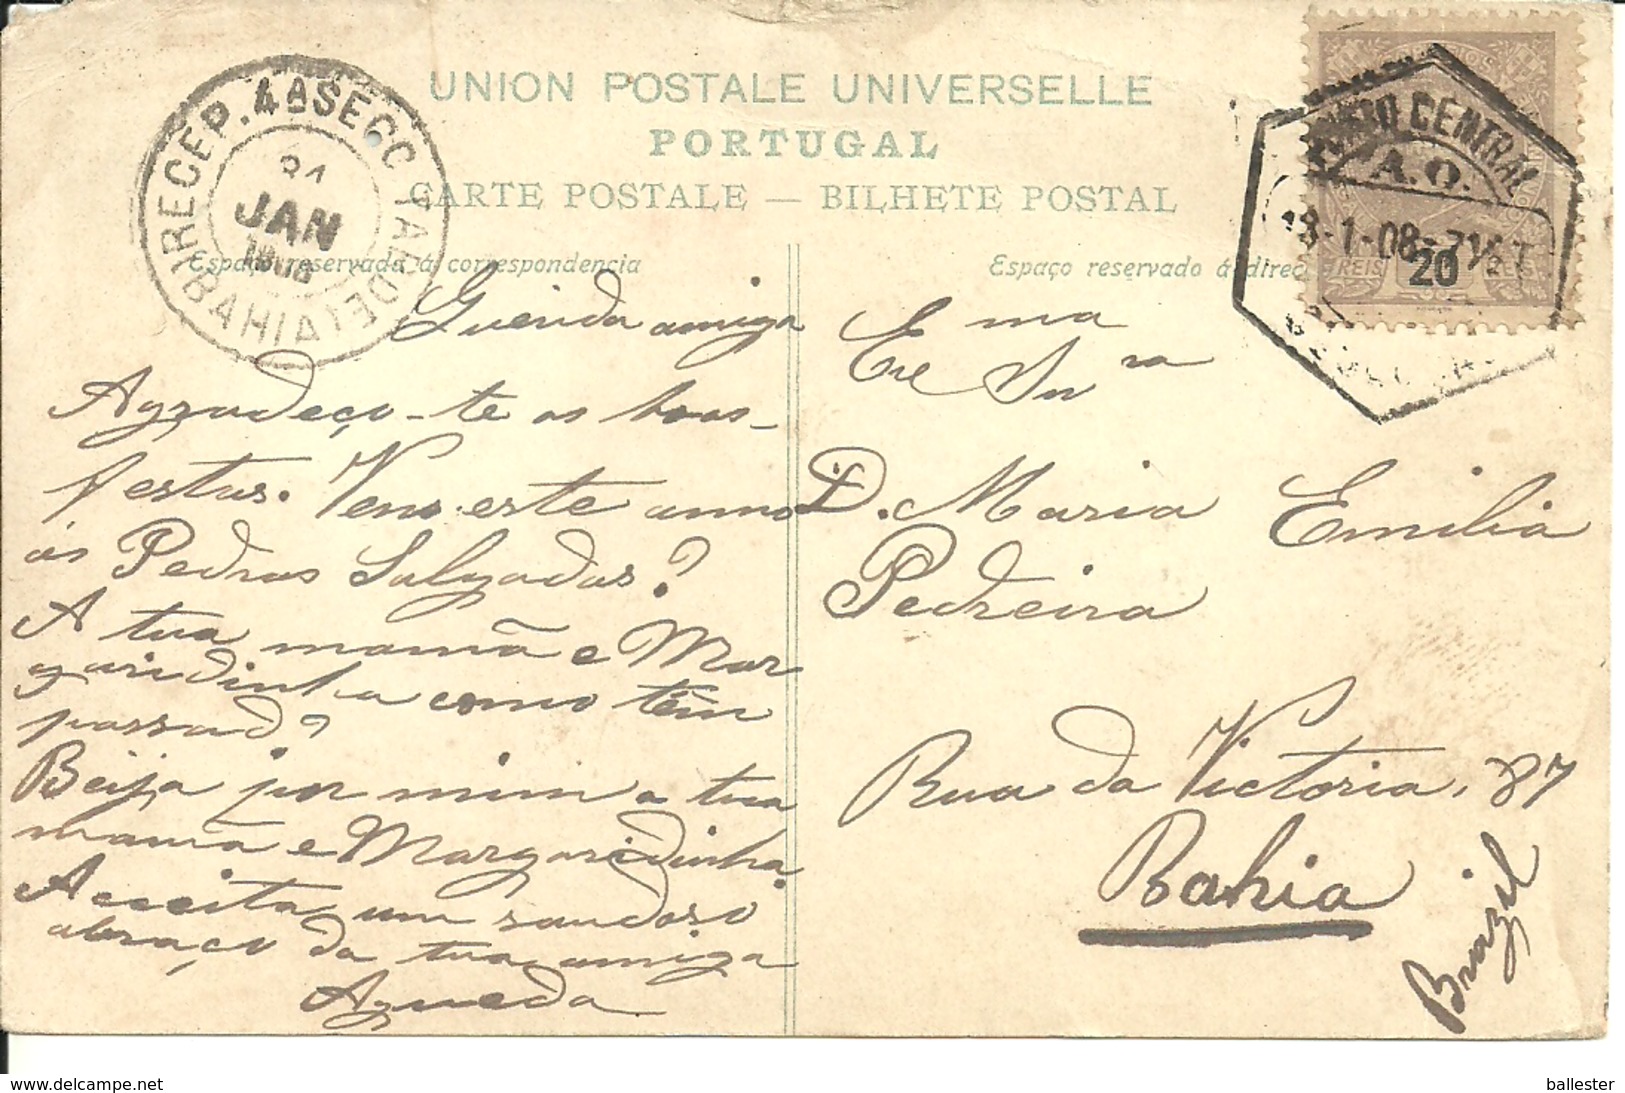 UNION POSTALE UNIVERSELLE
PORTUGAL
CARTE POSTALE — BILHETE POSTAL
RECEP. 4A SECC TARDE
JAN
BAHIA
Espaço reservado á correspondencia
Querida amiga
Agradeço-te as boas-
festas. Vens este anno
ás Pedras Salgadas?
A tua mamã e Mar
garidinha como têm
passado?
Beija por mim a tua
mamã e Margaridinha.
Acceita um saudoso
abraço da tua amiga
Agueda
Espaço reservado á direc
CENTRAL
A.O.
-1-08-
20
REIS REIS
Exma
Sra
D. Maria Emilia
Pedreira
Rua da Victoria, 87
Bahia
Brazil
delcampe.net
ballester